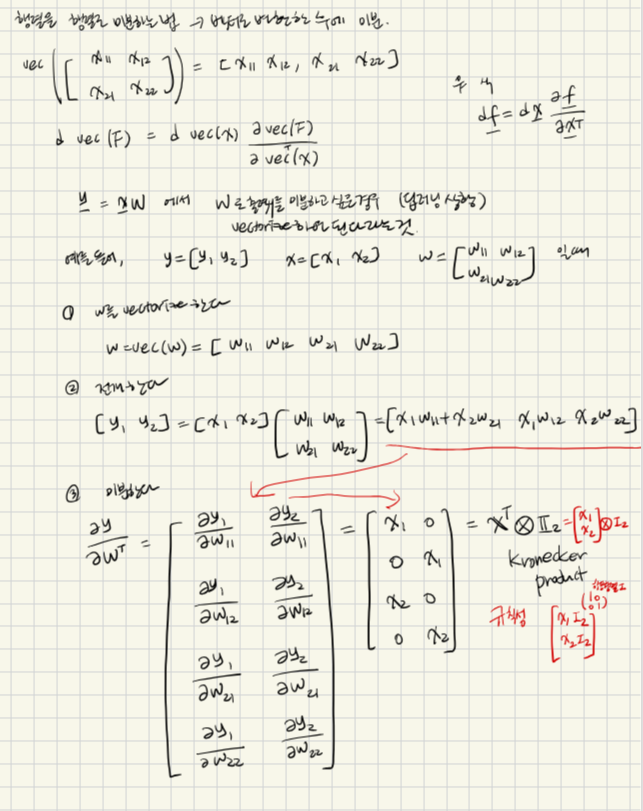 행렬을 행렬로 미분하는법 → 벡터로 변환한 후에 미분.
vec ( [ x11 x12 ; x21 x22 ] ) = [ x11 x12, x21 x22 ]
df = dx ∂f/∂xᵀ
d vec(F) = d vec(x) ∂vec(F)/∂vecᵀ(x)
y = xW 에서 W로 출력를 미분하고 싶은경우 (딥러닝 상황)
vectorize하면 된다라는것.
예를들어, y=[y1 y2] x=[x1 x2] w=[ w11 w12 ; w21 w22 ] 일때
① w를 vectorize 한다
w=vec(w) = [ w11 w12 w21 w22 ]
② 전개한다
[ y1 y2 ] = [ x1 x2 ] [ w11 w12 ; w21 w22 ] = [ x1w11+x2w21 x1w12 x2w22 ]
③ 미분한다
∂y/∂wᵀ = [ ∂y1/∂w11 ∂y2/∂w11 ; ∂y1/∂w12 ∂y2/∂w12 ; ∂y1/∂w21 ∂y2/∂w21 ; ∂y1/∂w22 ∂y2/∂w22 ] = [ x1 0 ; 0 x1 ; x2 0 ; 0 x2 ] = xᵀ ⊗ I2 = [ x1 ; x2 ] ⊗ I2
Kronecker
product
(1 0 ; 0 1)
규칙성 [ x1 I2 ; x2 I2 ]